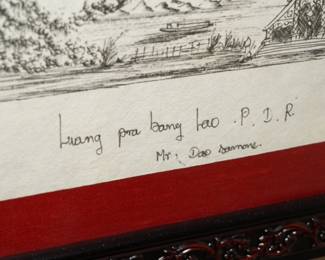 Luang pra bang Lao . P . D . R
Mr. Dao Samone.